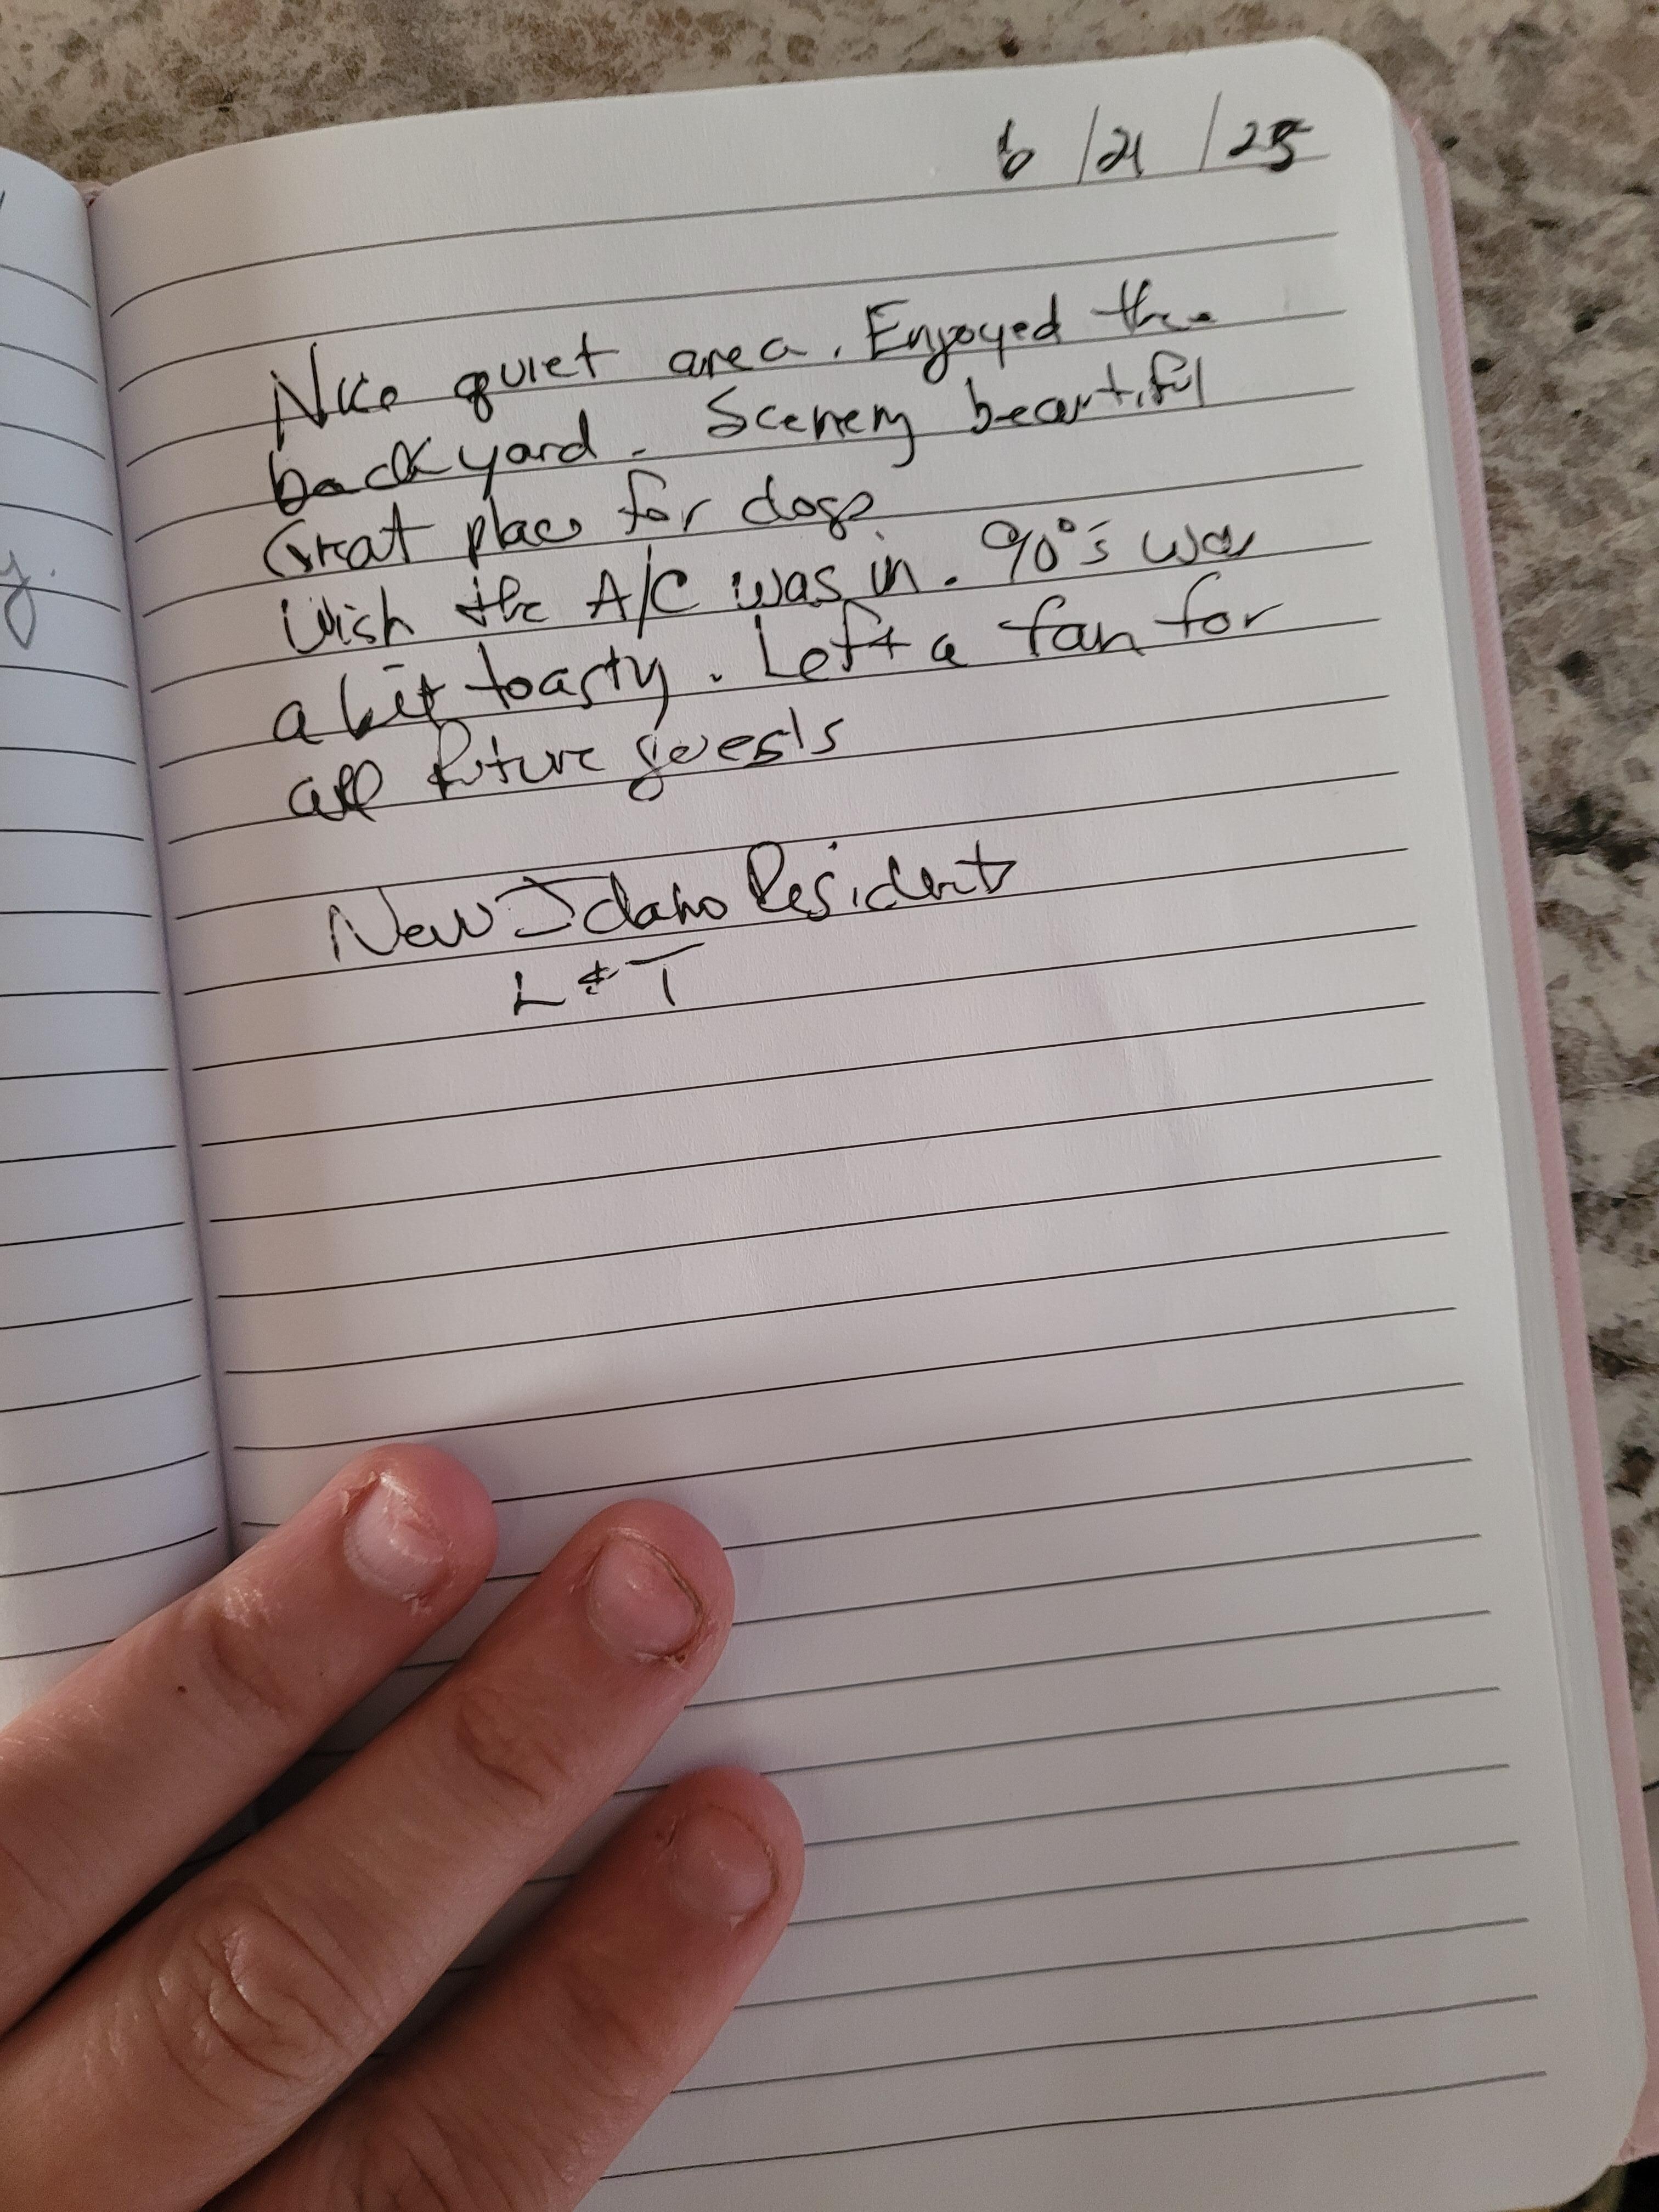 6/21/25
Nice quiet area. Enjoyed the
backyard. Scenery beautiful
Great place for dogs
Wish the A/C was in. 90°'s was
a bit toasty. Left a fan for
all future guests
New Idaho Residents
L & T
y.